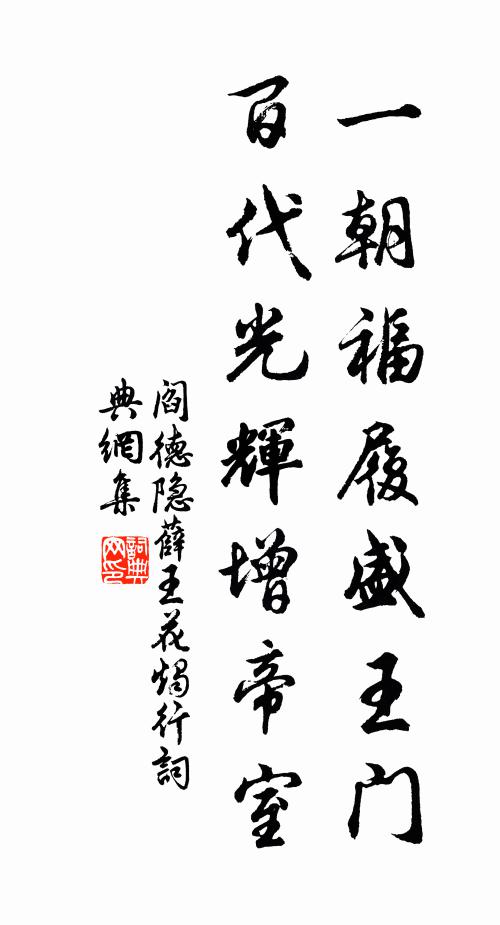 一朝福履盛王门
百代光輝增帝室
阎德隐薛王花燭行詞
典網集
詞典网印